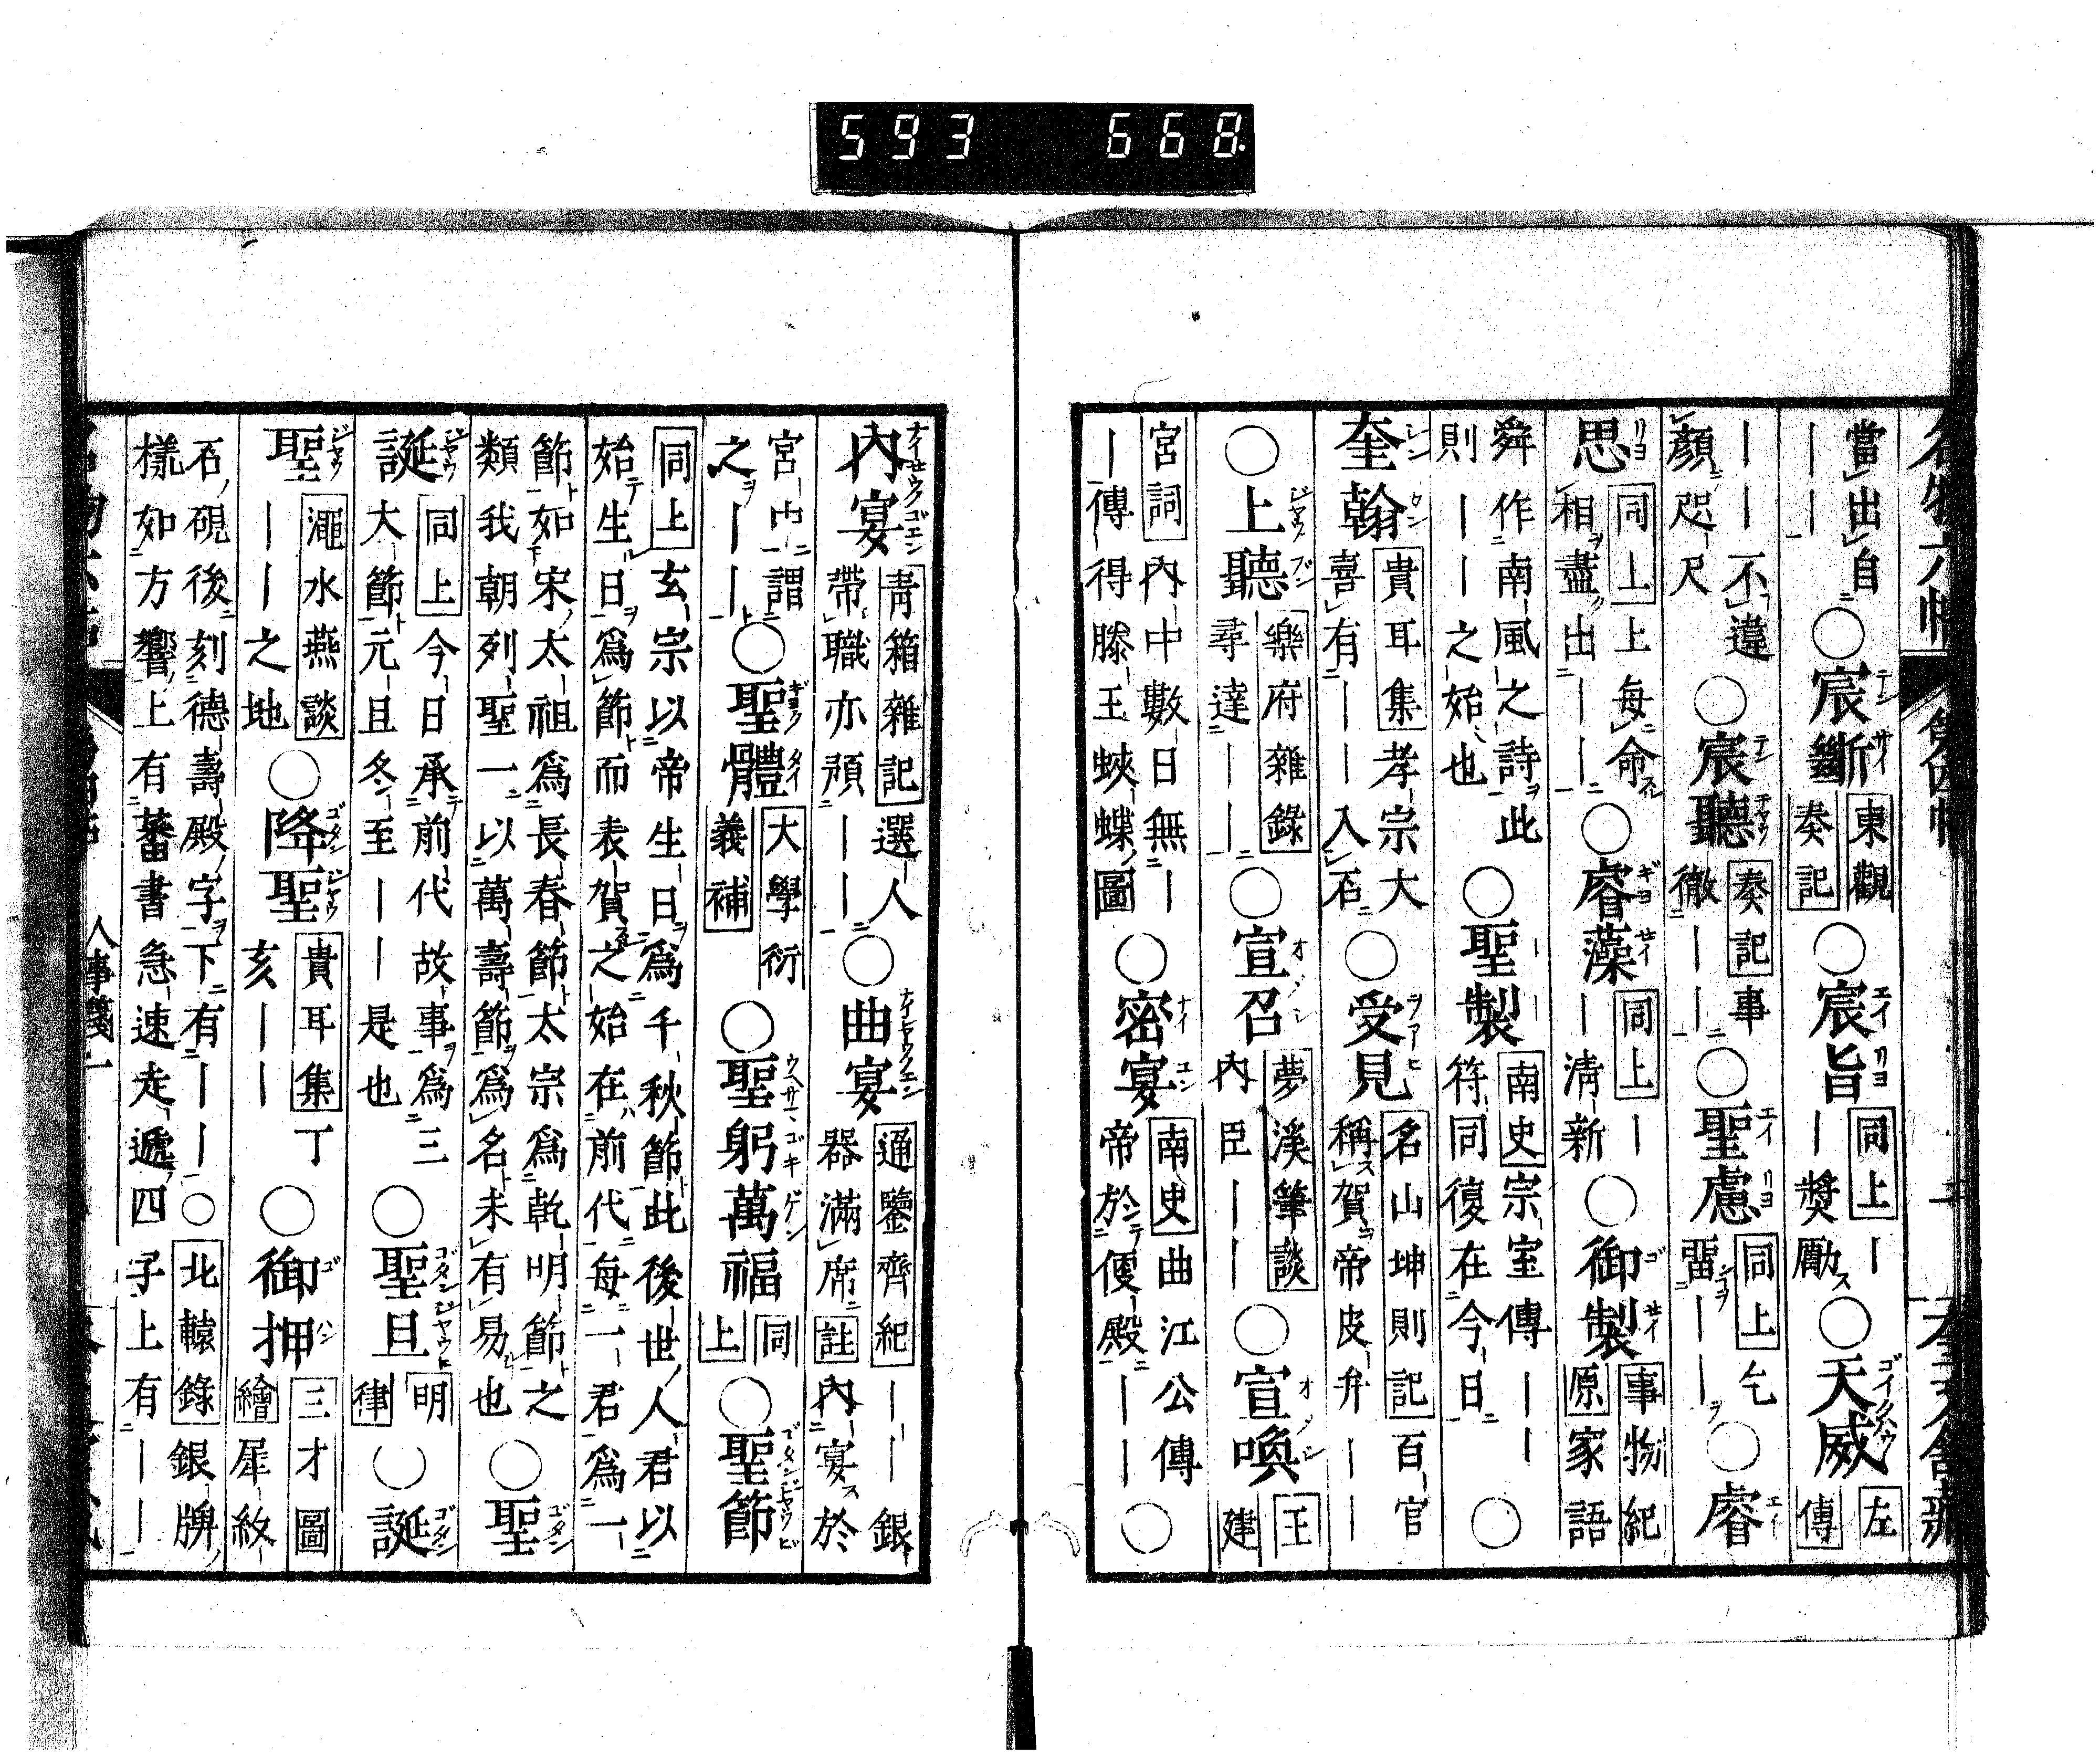 593 668
當出自○宸斷東觀奏記○宸旨同上｜獎勵○天威左傳
｜｜｜｜不違顏咫尺○宸聽奏記事徹｜｜○聖慮同上乞畱｜｜○睿
思同上上每命相盡出｜｜○睿藻同上｜｜清新○御製事物紀原家語
舜作南風之詩此則｜｜之始也○聖製南史宗室傳｜｜符同復在今日○
奎翰貴耳集孝宗大喜有｜｜入石○受見名山坤則記百官稱賀帝皮弁｜｜
○上聽樂府雜錄尋達｜｜○宣召夢溪筆談內臣｜｜○宣喚王建
宮詞內中數日無｜｜傳得滕王蛺蝶圖○密宴南史曲江公傳帝於便殿｜｜○
內宴青箱雜記選人帶職亦預｜｜○曲宴通鑒齊紀｜｜銀器滿席註內宴於
宮中謂之｜｜○聖體大學衍義補○聖躬萬福同上○聖節
同上玄宗以帝生日爲千秋節此後世人君以始生日爲節而表賀之始在前代每一君爲一
節如宋太祖爲長春節太宗爲乾明節之類我朝列聖一以萬壽節爲名未有易也○聖
誕同上今日承前代故事爲三大節元旦冬至｜｜是也○聖旦明律○誕
聖澠水燕談｜｜之地○降聖貴耳集丁亥｜｜○御押三才圖繪犀紋
石硯後刻德壽殿字下有｜｜○北轅錄銀牌樣如方響上有蕃書急速走遞四子上有｜｜